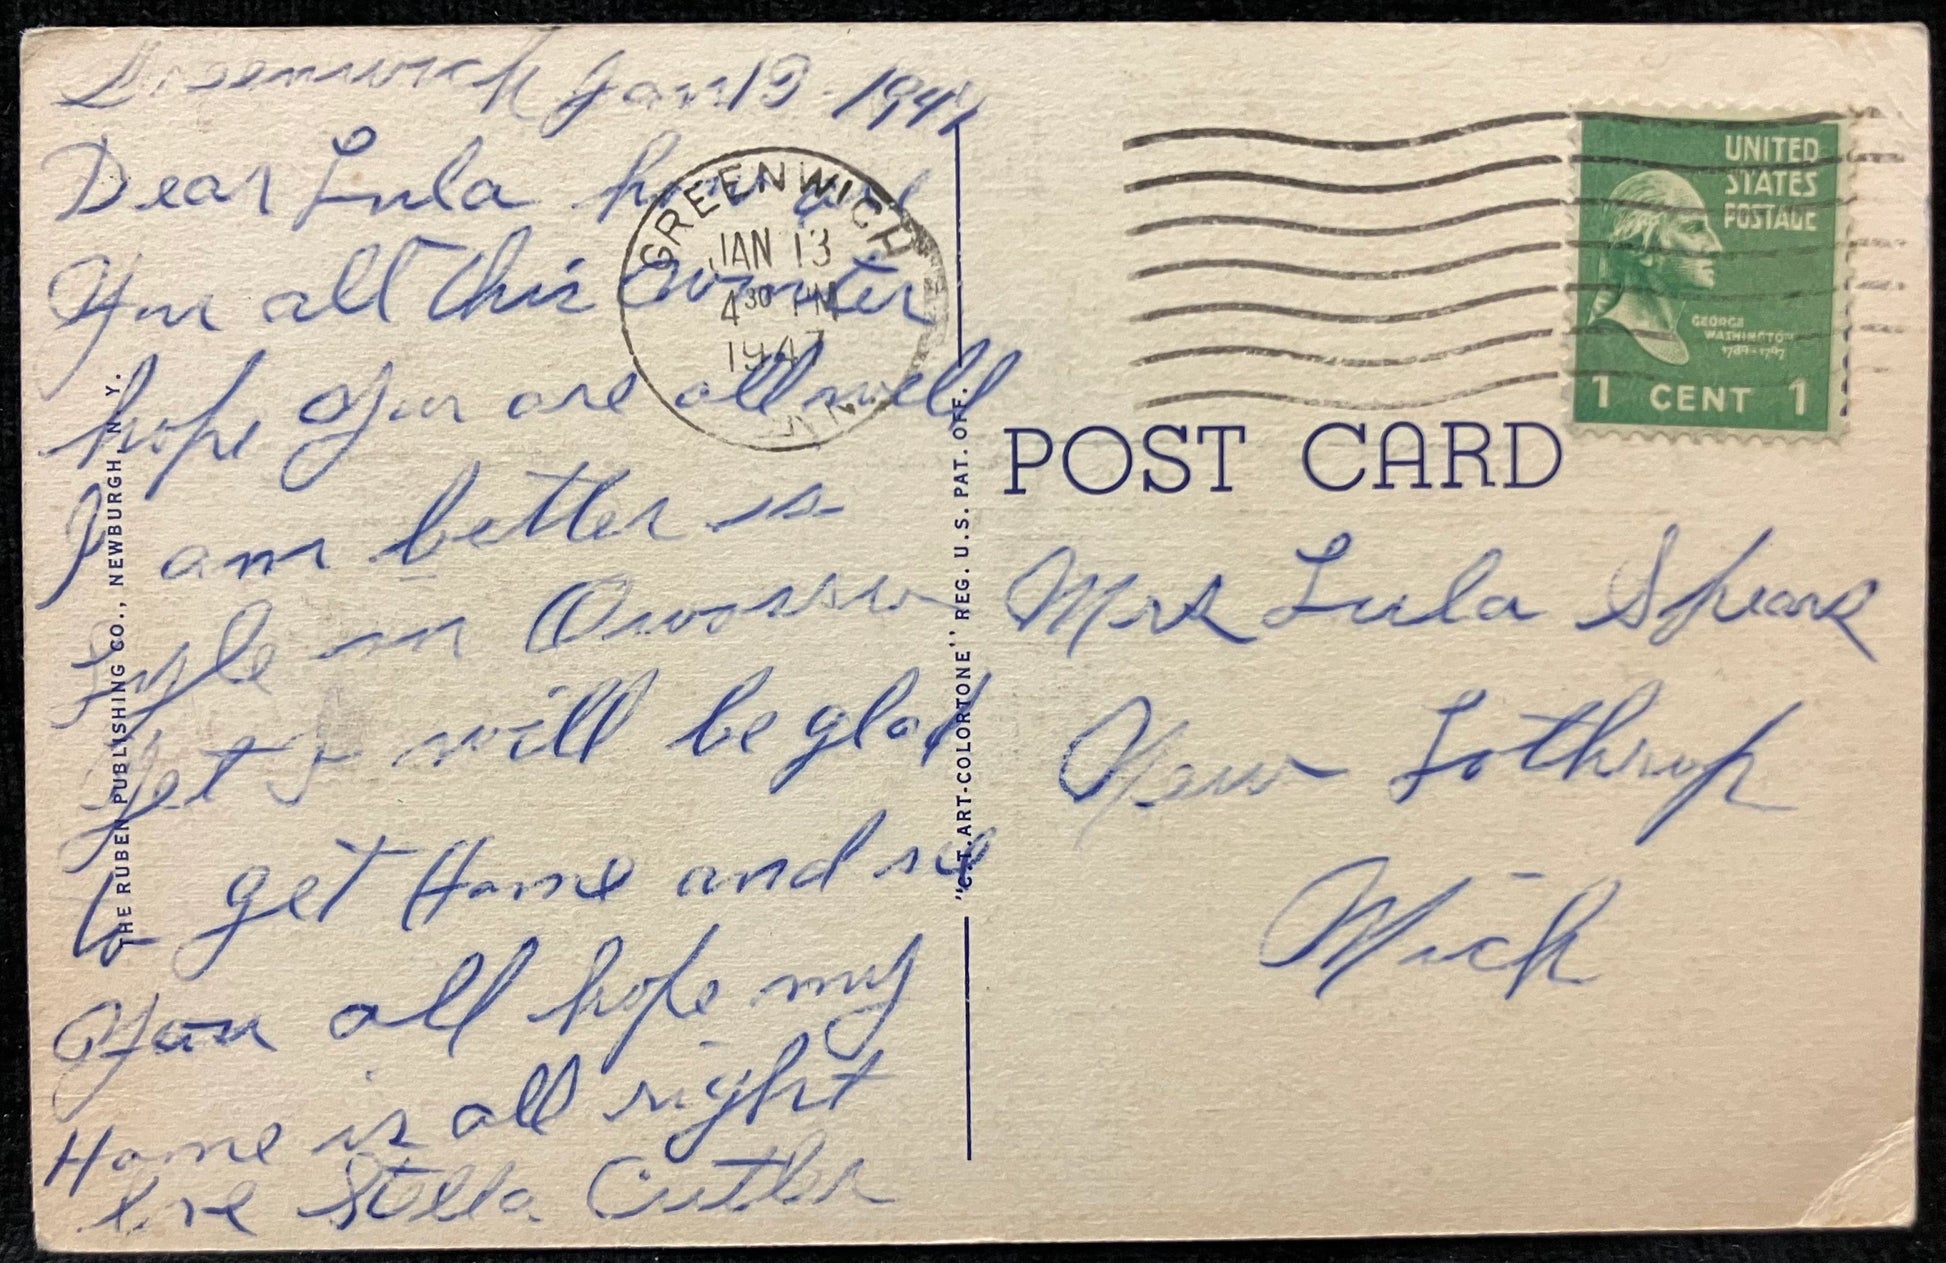 Greenwich Jan 13 - 1947
Dear Lula how are
You all this winter
hope You are all well
I am better is
Lyle in Owosso
Yet I will be glad
to get Home and see
You all hope my
Home is all right
love Stella Cutler
GREENWICH
JAN 13
4 30 PM
1947
N.Y.
THE RUBEN PUBLISHING CO., NEWBURGH, N. Y.
"C.T. ART-COLORTONE" REG. U.S. PAT. OFF.
UNITED
STATES
POSTAGE
GEORGE
WASHINGTON
1789-1797
1 CENT 1
POST CARD
Mrs Lula Spears
New Lothrop
Mich